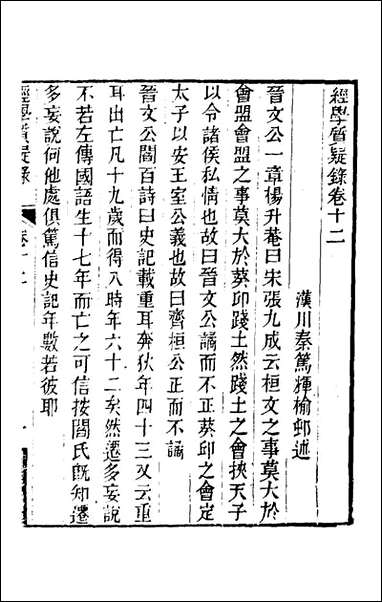 經學質疑錄卷十二
漢川秦篤輝榆邨述
晉文公一章楊升菴曰朱張九成云桓文之事莫大於
會盟會盟之事莫大於葵邱踐土然踐土之會挾天子
以令諸侯私情也故曰晉文公譎而不正葵邱之會定
太子以安王室公義也故曰齊桓公正而不譎
晉文公閻百詩曰史記載重耳奔狄年四十三又云重
耳出亡凡十九歲而得入時年六十二矣然遷多妄說
不若左傳國語生十七年而亡之可信按閻氏既知遷
多妄說何他處俱篤信史記年數若彼耶
經學質疑錄
卷十二
一